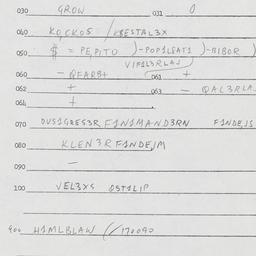 030 GROW 031 0
040 KQCKO5 / KBESTAL3X
050 $ = PEPITO )-POP1LEAT1 )-BIBOR )
VIF1L3RLAJ
060 - QFARB+ 061 +
062 + 063 - QAL3RLA
064 +
070 OVS1GRES3R F1N1MAND3RN F1NDEJS
080 KLEN3R F1NDEJM
090 -
100 VEL3XS OST1LIP
900 H1MLBLAW // 170090